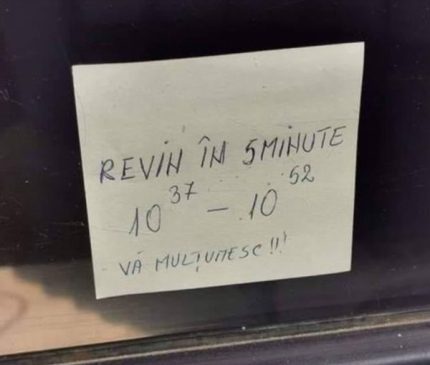 REVIN ÎN 5MINUTE
10³⁷ – 10⁵²
VĂ MULȚUMESC!!!